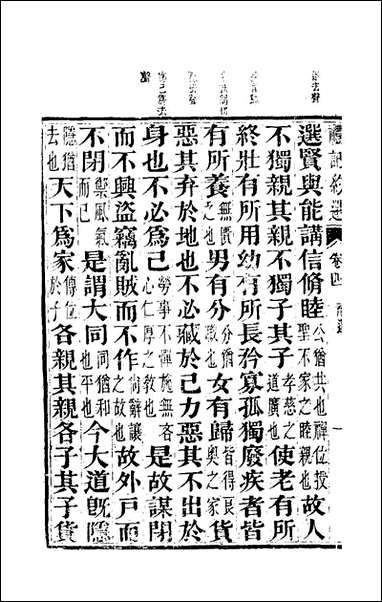 選賢與能講信脩睦公猶共也禪位授聖不家之睦親也故人
不獨親其親不獨子其子孝慈之道廣也使老有所
終壯有所用幼有所長矜寡孤獨廢疾者皆
有所養無匱之也男有分分猶職也女有歸皆得良奧之家貨
惡其弃於地也不必藏於己力惡其不出於
身也不必為己勞事不憚施無吝心仁厚之教也是故謀閉
而不興盜竊亂賊而不作尚辭讓之故也故外戶而
不閉禦風氣而已是謂大同同猶和也平也今大道既隱
隱猶去也天下為家傳位於子各親其親各子其子貨